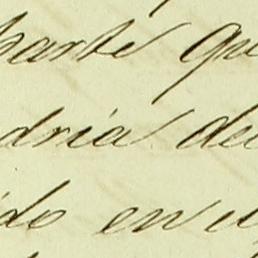 parte qu
dria de
ido en u